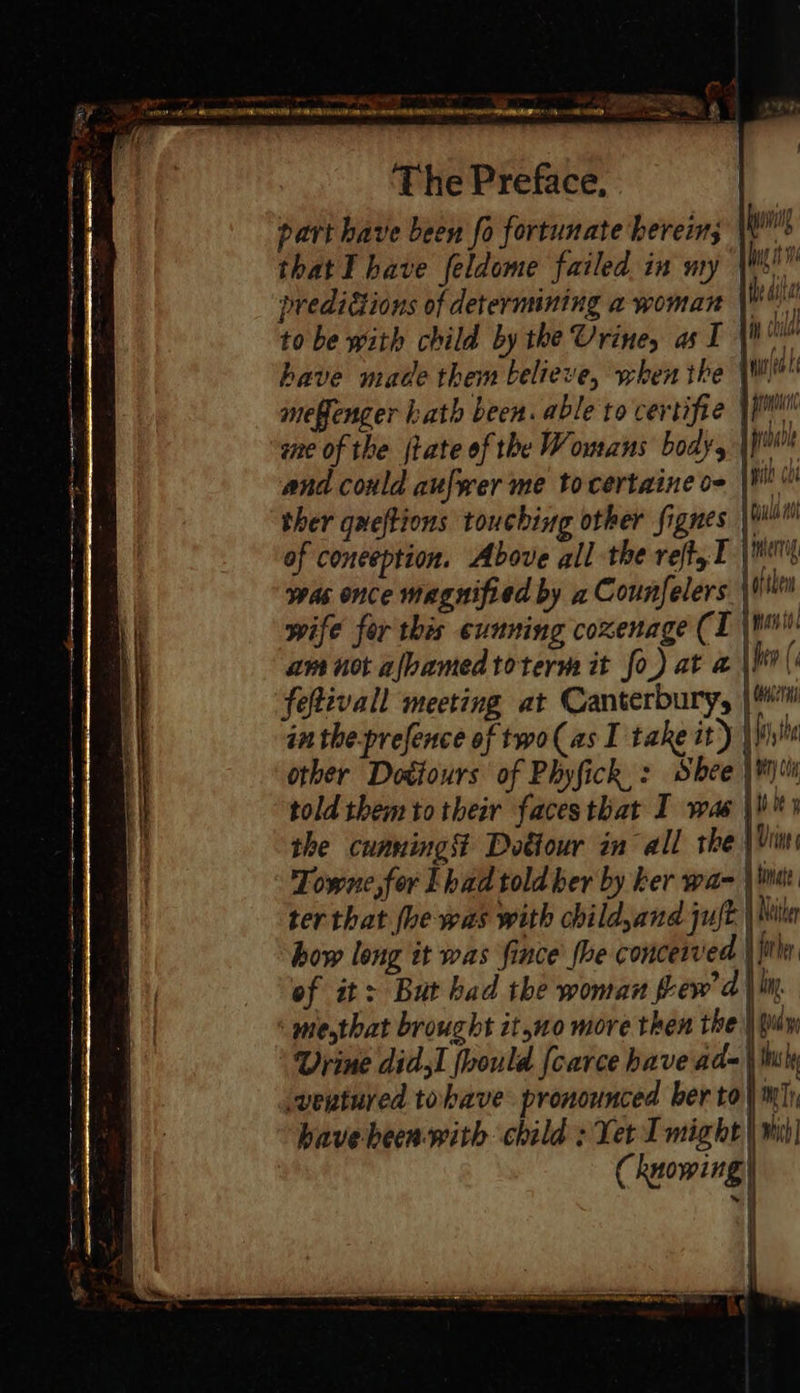 The Preface.
part have been ſo fortunate herein;
that I have ſeldome failed in my
predictions of determining a woman
to be with child by the Urine, as I
have made them believe, when the
meſſenger hath been able to certifie
me of the ſtate of the Womans body,
and could auſwer me to certaine o-
ther queſtions touching other ſignes
of conception. Above all the reſt, I
was once magnified by a Counſelers
wife for this cunning cozenage (I
am not aſhamed to term it ſo) at a
feſtivall meeting at Canterbury,
in the preſence of two (as I take it)
other Doctours of Phyſick : Shee
told them to their faces that I was
the cunningſt Doctour in all the
Towne, for I had told her by her wa-
ter that ſhe was with child, and juſt
how long it was ſince ſhe conceived
of it: But had the woman ſhew'd
me, that brought it, no more then the
Urine did, I ſhould ſcarce have ad-
ventured to have pronounced her to
have been with child : Yet I might
(knowing